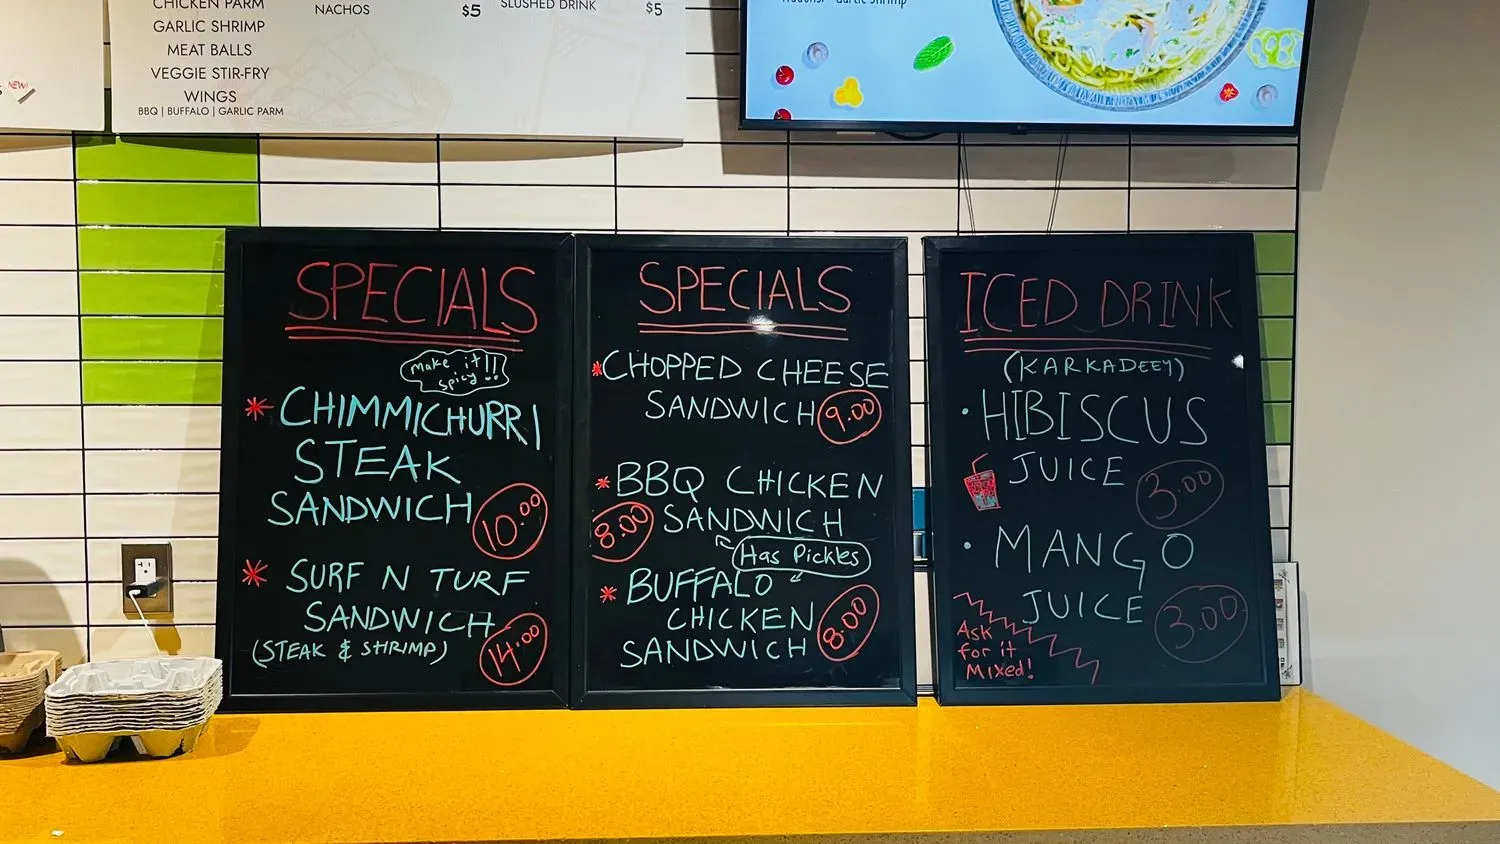 CHICKEN PARM
GARLIC SHRIMP
MEAT BALLS
VEGGIE STIR-FRY
WINGS
BBQ | BUFFALO | GARLIC PARM
NEW!
NACHOS $5
SLUSHED DRINK $5
Garlic Shrimp
SPECIALS
Make it !!
Spicy
* CHIMMICHURRI
STEAK
SANDWICH 10.00
* SURF N TURF
SANDWICH
(STEAK & SHRIMP) 14.00
SPECIALS
* CHOPPED CHEESE
SANDWICH 9.00
* BBQ CHICKEN
8.00 SANDWICH
Has Pickles
* BUFFALO
CHICKEN
SANDWICH 8.00
ICED DRINK
(KARKADEEY)
• HIBISCUS
JUICE 3.00
• MANGO
JUICE 3.00
Ask
for it
Mixed!